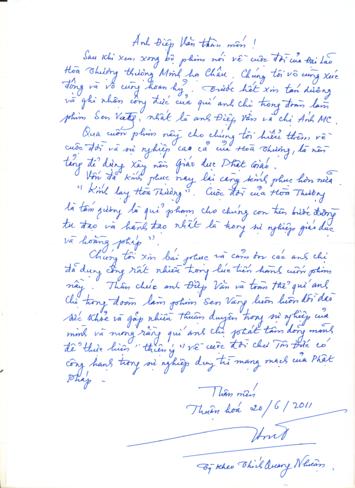 Anh Điệp Văn thân mến!
Sau khi xem xong bộ phim nói về cuộc đời của đại lão
Hòa thượng thượng Minh hạ Châu. Chúng tôi vô cùng xúc
động và vô cùng hoan hỷ. Trước hết xin tán dương
và ghi nhận công đức của quí anh chị trong đoàn làm
phim Sen Việt, nhất là anh Điệp Văn và chị Anh MC.
Qua cuốn phim này cho chúng tôi hiểu thêm về
cuộc đời và sự nghiệp cao cả của Hòa thượng, là nền
tảng để dựng xây nền Giáo dục Phật Giáo.
Vốn đã kính phục nay lại càng kính phục hơn nữa
"Kính lạy Hòa Thượng". Cuộc đời của Hòa Thượng
là tấm gương là quỉ phạm cho chúng con trên bước đường
tu đạo và hành đạo nhất là trong sự nghiệp giáo dục
và hoằng pháp".
Chúng tôi xin bái phục và cảm ơn các anh chị
đã dụng công rất nhiều trong lúc tiến hành cuốn phim
này. Thân chúc anh Điệp Văn và toàn thể quí anh
chị trong đoàn làm phim Sen Vàng luôn luôn dồi dào
sức khỏe và gặp nhiều thuận duyên trong sự nghiệp của
mình và mong rằng quí anh chị phát tâm dõng mãnh
để thực hiện "thiên ý" về cuộc đời chư Tôn Đức có
công hành trong sự nghiệp duy trì mạng mạch của Phật
Pháp.
Thân mến
Thuận hoá 20/6/2011
Tỳ kheo Thích Quang Nhuận